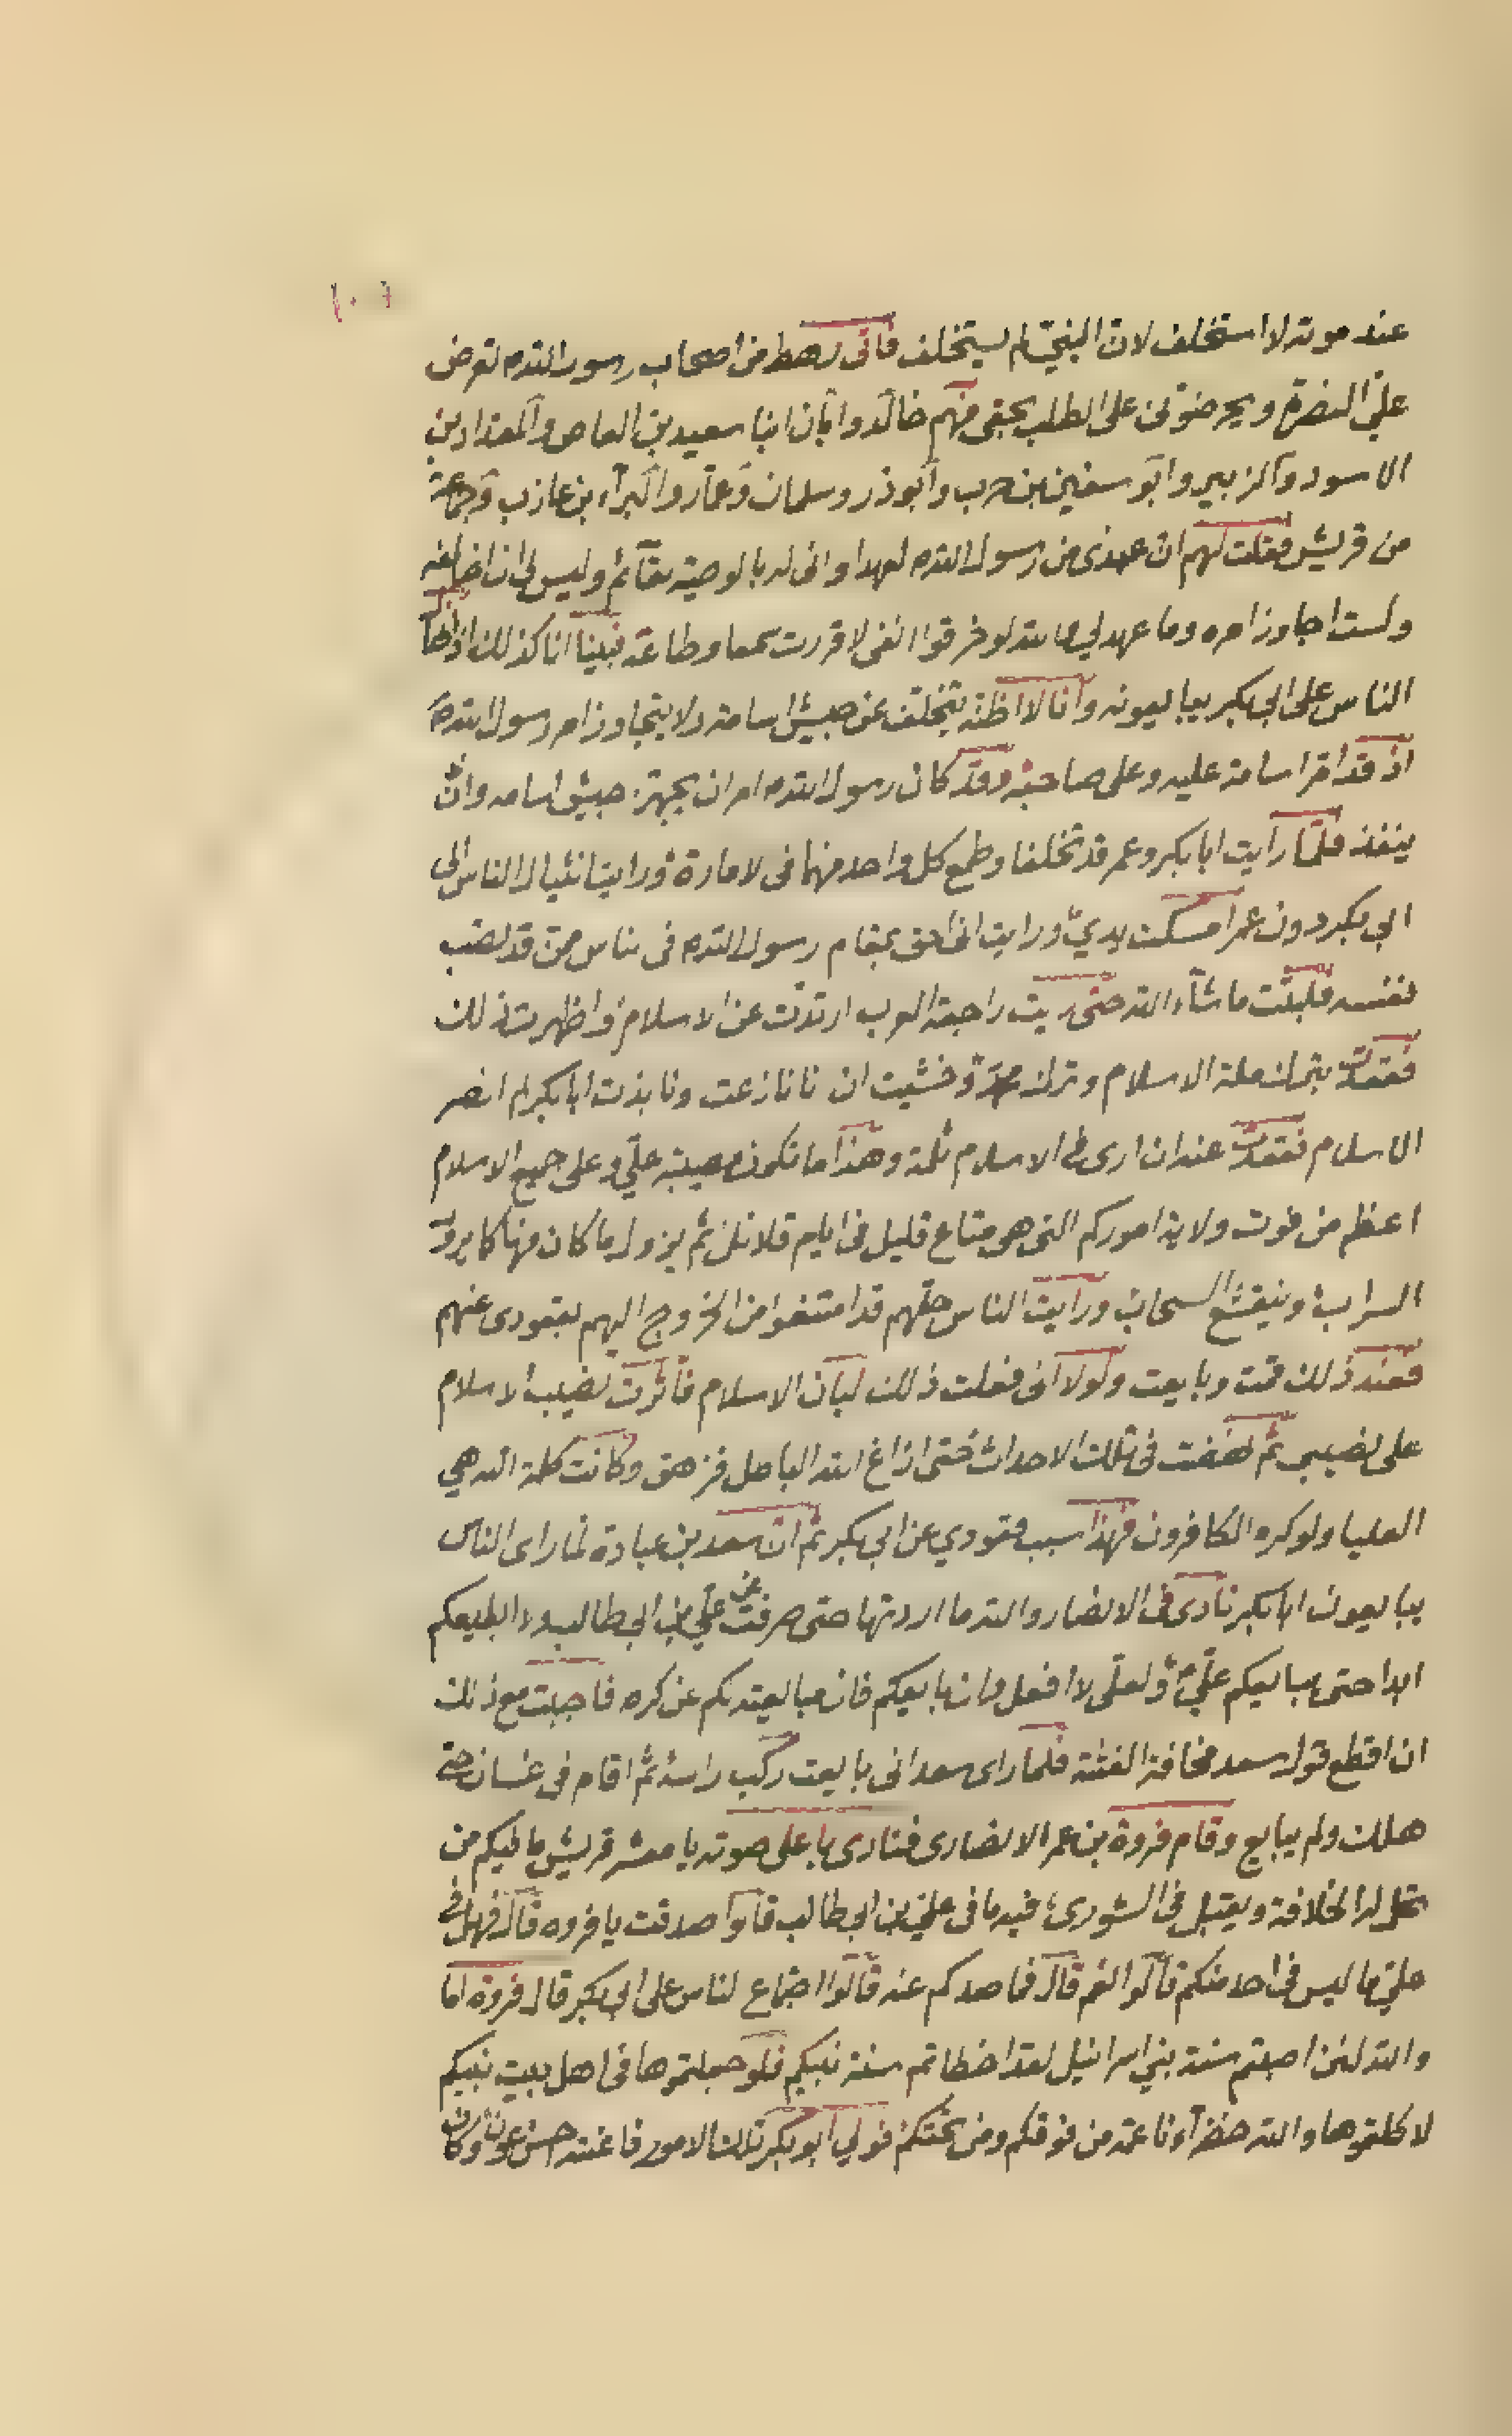 عند موته لا استخلف لان النبي لم يستخلف فاتى رهط من اصحاب رسول الله تعرض
علي النصرة ويحرضونى على الطلب بحقى منهم خالد وابان ابنا سعيد بن العاص والمقداد بن
الاسود والزبير وابو سفين بن حرب وابوذر وسلمان وعمار والبراء بن عازب وجماعة
من قريش فقلت لهم ان عندى من رسول الله لعهدا وانى له بالوصية لقائم وليس لى ان اخالفه
ولست اجاوز امره وما عهد لي لو خرقوا انفى لاقررت سمعا وطاعة فبينا انا كذلك اذ
الناس على ابى بكر يبايعونه وانا لا اظنه يتخلف عن جيش اسامة ولا يتجاوز امر رسول الله
اذ قد امر اسامة عليه وعلى صاحبه وقد كان رسول الله امر ان يجهز جيش اسامه وان
ينفذ فلما رايت ابا بكر وعمر قد تخلفا وطمع كل واحد منهما فى لامارة ورايت انثيال الناس الى
ابى بكر دون عمر امسكت يدي ورايت انى احق بمقام رسول الله فى ناس ممن قد نصب
نفسه فلبثت ما شاء الله حتى ريت راجعة العرب ارتدت عن الاسلام واظهرت ذلك
بترك ملة الاسلام وترك وخشيت ان نازعت ونابذت ابا بكر لم انصر
الاسلام عند ان ارى فى الاسلام ثلمة وهذا ما تكون مصيبته علي وعلى جميع الاسلام
اعظم من فوت ولاية اموركم التى هى متاع قليل فى ايام قلائل ثم يزول ما كان منها كما يزول
السراب وينقشع السحاب ورايت الناس قد امتنعوا من الخروج اليهم لقعودى عنهم
فعند ذلك قمت وبايعت ولولا انى فعلت ذلك لبان الاسلام فاثرت نصيب لاسلام
على نصيبى ثم نهضت فى تلك الاحداث حتى ازاغ الله الباطل فزهق وكانت كلمة الله هي
العليا ولو كره الكافرون فهذا سبب قعودي عن ابى بكر ثم ان سعد بن عبادة لما راى الناس
يبايعون ابابكر نادى فى الانصار والله ما اردتها حتى صرفت عن علي بن ابى طالب ولا ابايعكم
ابدا حتى يبايعكم علي ولعلى لا افعل وان بايعكم فان مبايعته لكم عن كره فاحببت مع ذلك
ان اقطع قول سعد مخافة الفتنة فلما راى سعد انى بايعت ركب راسه ثم اقام فى غسان حتى
هلك ولم يبايع وقام فروة بن عمر الانصارى فنادى باعلى صوته يا معشر قريش ما فيكم من
تحل له الخلافة ويقبل فى الشورى فيه ما فى على بن ابى طالب قالوا صدقت يا فروه قال فهل فى
على ما ليس فى احد منكم قالوا نعم قال فما صدكم عنه قالوا اجتماع لناس على ابى بكر قال فروة اما
والله لئن اصبتم سنة بني اسرائيل لقد اخطاتم سنة نبيكم فلو جعلتموها فى اهل بيت نبيكم
لاكلتموها والله خضراء ناعمة من فوقكم ومن تحتكم فولي ابو بكر تلك الامور فاعنته حسن عون وكان